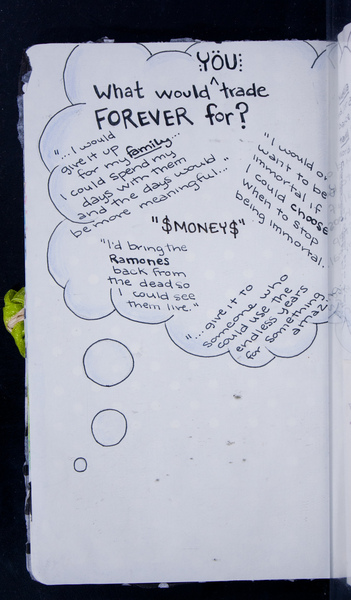 YOU
What would ^ trade
FOREVER for?
"...I would
give it up
for my family...
I could spend my
days with them
and the days would
be more meaningful..."
"I would o
want to be
immortal if
I could choose
when to stop
being immortal.
"$MONEY$"
"I'd bring the
Ramones
back from
the dead so
I could see
them live."
"...give it to
someone who
could use the
endless years
for something
amaz